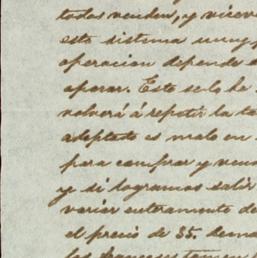 todos venden, y vicev
este sistema muy
operacion depende
apurar. Esto solo he
volverá á repetir la
adoptado es malo en
para comprar y ven
ye si logramos salir
variar enteramente d
el precio de 35.
los franceses